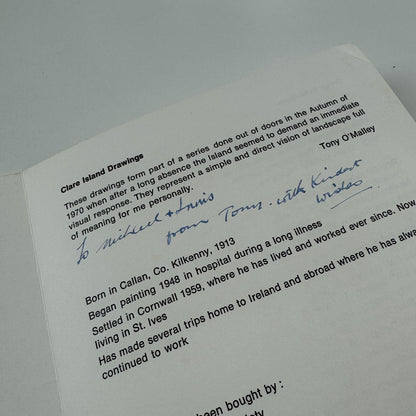 Clare Island Drawings
These drawings form part of a series done out of doors in the Autumn of
1970 when after a long absence the Island seemed to demand an immediate
visual response. They represent a simple and direct vision of landscape full
of meaning for me personally.
Tony O'Malley
To Michael +
from Tony. with Kindest
wishes
Born in Callan, Co. Kilkenny, 1913
Began painting 1948 in hospital during a long illness
Settled in Cornwall 1959, where he has lived and worked ever since. Now
living in St. Ives
Has made several trips home to Ireland and abroad where he has
continued to work
been bought by: